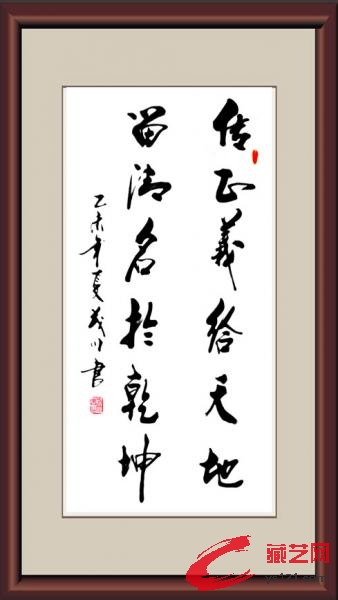 传正義给天地
留清名於乾坤
乙未年夏茂川書
藏艺网